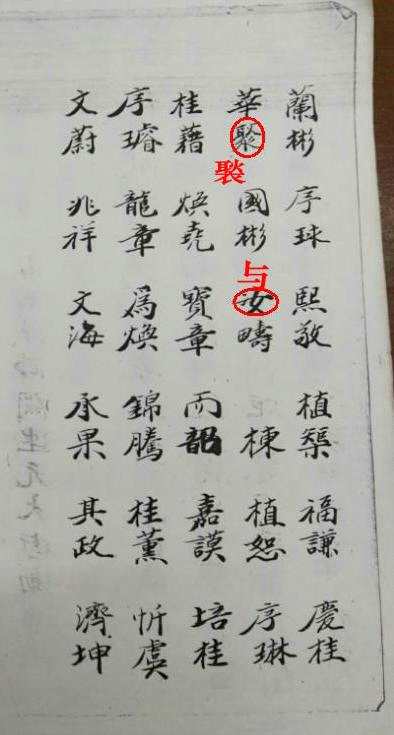 蘭彬 序球 熙敬 植榘 福謙 慶桂
華聚 國彬 汝疇 棟 植恕 序琳
与
桂藉 煥堯 寶章 雨韶 嘉謨 培桂
序璿 龍章 爲煥 錦騰 桂薰 忻虞
文蔚 兆祥 文海 承果 其政 濟坤